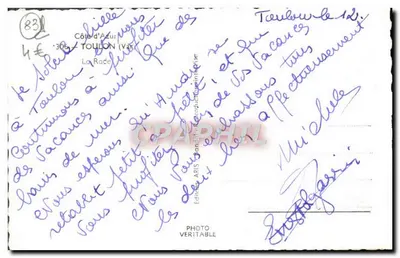 83
4€
Côte d'Azur
TOULON (Var)
La Rade
Toulon le 12
Le Soleil brille
à Toulon et nous
continuons à profiter
des vacances ainsi que des
bains de mer.
Nous espérons qu'
se
rétablit petit à petit et que
vous profitez de vos vacances
Nous vous embrassons tous
les deux bien affectueusement
Michele
CPARAMA
PHOTO
VERITABLE